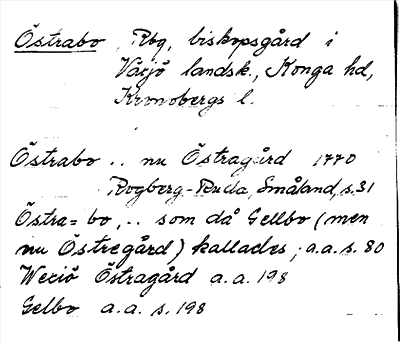 Östrabo, Rbg, biskopsgård i
Växjö landsk., Konga hd,
Kronobergs l.
Östrabo .. nu Östragård 1770
Rogberg-Ruda, Småland, s. 31
Östra=bo, .. som då Gellbo (men
nu Östregård) kallades; a.a. s. 80
Wexiö Östragård a.a. 198
Gelbo a.a. s. 198